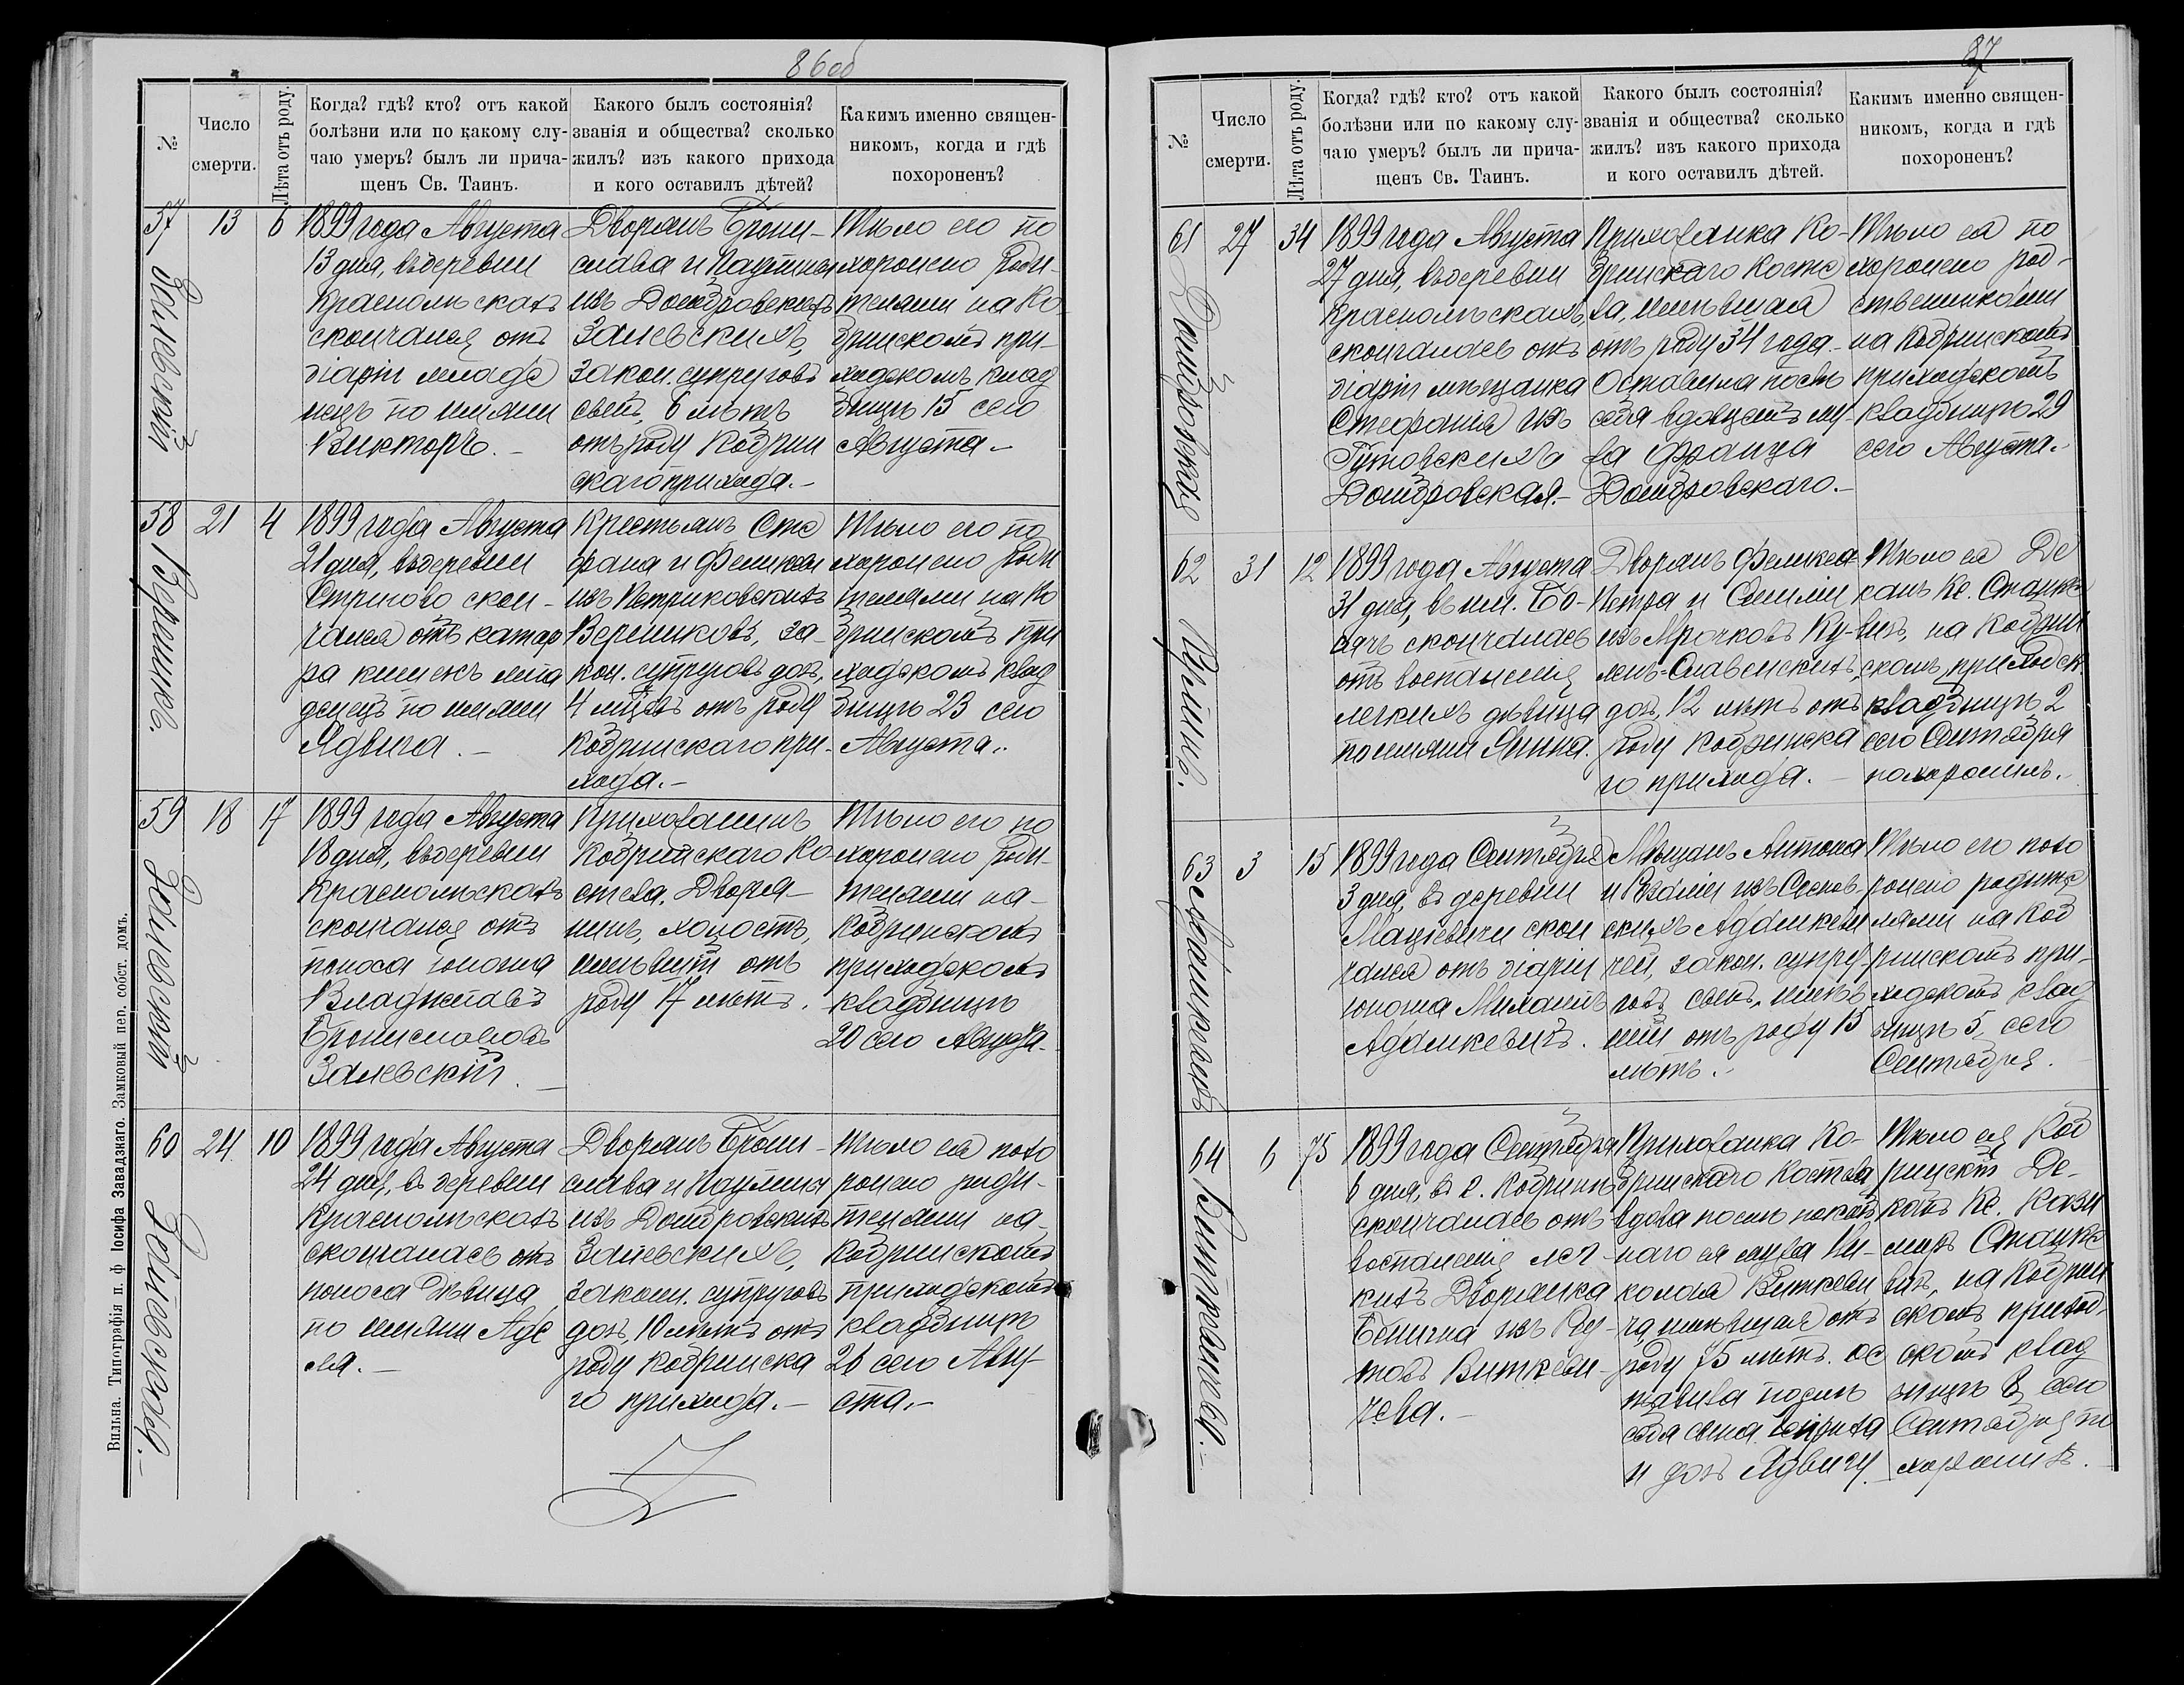 86об
№
Число
смерти.
Лѣта отъ роду.
Когда? гдѣ? кто? отъ какой
болѣзни или по какому слу-
чаю умеръ? былъ ли прича-
щенъ Св. Таинъ.
Какого былъ состоянія?
званія и общества? сколько
жилъ? изъ какого прихода
и кого оставилъ дѣтей?
Какимъ именно священ-
никомъ, когда и гдѣ
похороненъ?
57
Залевскій
13
6
1899 года Августа
13 дня, въ деревни
Краснольскахъ
скончался отъ
діаріи младе
нецъ по имяни
Викторъ.-
Дворянъ Брони-
слава и Паулины
изъ Домбровскихъ
Залевскихъ,
закон. супруговъ
сынъ, 6 лѣтъ
отъ роду Кобрин
скаго прихода.-
Тѣло его по
хоронено роди-
телями на Ко-
бринскомъ при-
ходскомъ клад
бищѣ 15 сего
Августа.-
58
21
4
1899 года Августа
21 дня, въ деревни
Стригово скон-
чался отъ катар
ра кишекъ мла
денецъ по имяни
Ядвига.-
Крестьянъ Сте
фана и Феликсы
изъ Петриковскихъ
Веремиковъ, за-
кон. супруговъ доч.
4 отъ роду
Кобринскаго при-
хода.-
Тѣло его по
хоронено роди
телями на Ко
бринскомъ при
ходскомъ клад
бищѣ 23 сего
Августа.-
59
Залевскій
18
17
1899 года Августа
18 дня, въ деревни
Краснольскахъ
скончался отъ
поноса юноша
Владиславъ
Брониславовъ
Залевскій.-
Прихожанинъ
Кобринскаго Ко-
стела. Дворя-
нинъ, холостъ,
имѣвшій отъ
роду 17 лѣтъ.
Тѣло его по
хоронено роди-
телями на-
Кобринскомъ
приходскомъ
кладбищѣ
20 сего Августа.
60
Залевская.-
24
10
1899 года Августа
24 дня, въ деревни
Краснольскахъ
скончалась отъ
поноса дѣвица
по имяни Аде
ля.-
Дворянъ Брони-
слава и Паулины
изъ Домбровскихъ
Залевскихъ,
закон. супруговъ
доч. 10 лѣтъ отъ
роду Кобринска
го прихода.-
Тѣло ея похо
ронено роди-
телями на-
Кобринскомъ
приходскомъ
кладбищѣ
26 сего Авгу-
ста.-
Вильна. Типографія п. ф Іосифа Завадзкаго. Замковый пер. собст. домъ.
87
№
Число
смерти.
Лѣта отъ роду.
Когда? гдѣ? кто? отъ какой
болѣзни или по какому слу-
чаю умеръ? былъ ли прича-
щенъ Св. Таинъ.
Какого былъ состоянія?
званія и общества? сколько
жилъ? изъ какого прихода
и кого оставилъ дѣтей.
Какимъ именно священ-
никомъ, когда и гдѣ
похороненъ?
61
Домбровская
27
34
1899 года Августа
27 дня, въ деревни
Краснольскахъ,
скончалась отъ
діаріи мѣщанка
Стефанія изъ
Гутовскихъ
Домбровская.-
Прихожанка Ко-
бринскаго косте
ла, имѣвшая
отъ роду 34 года.-
Оставила послѣ
себя вдовцемъ му-
жа Франца
Домбровскаго.-
Тѣло ея по
хоронено род-
ственниками
на Кобринскомъ
приходскомъ
кладбищѣ 29
сего Августа.-
62
31
12
1899 года Августа
31 дня, въ им. Бо-
скончалась
отъ воспаленія
легкихъ дѣвица
по имяни Янина.
Дворянъ Феликса
Петра и Эмиліи
изъ Мрочковъ Ку-
доч. 12 лѣтъ отъ
роду Кобринска
го прихода.-
Тѣло ея Де
канъ Кс. Станке
вичъ, на Кобрин
скомъ, приходск.
кладбищѣ 2
сего Сентября
похоронилъ.
63
Адамкевичъ
3
15
1899 года Сентября
3 дня, въ деревни
Мацкевичи скон
чался отъ діаріи
юноша Михаилъ
Адамкевичъ.
Мѣщанъ Антона
и Розаліи изъ
скихъ Адамкеви
чей, закон. супру-
говъ сынъ, имѣв
шій отъ роду 15
лѣтъ.-
Тѣло его похо
ронено родите
лями на Коб
ринскомъ при-
ходскомъ клад
бищѣ 5 сего
Сентября.
64
6
75
1899 года Сентября
6 дня, въ г. Кобринѣ
скончалась отъ
воспаленія лег-
кихъ Дворянка
Бенигна изъ Ру-
товъ Виткеви-
чева.-
Прихожанка Ко-
бринскаго костела
вдова послѣ покой
наго ея мужа Ни-
колая Виткеви
ча имѣвшая отъ
роду 75 лѣтъ. Ос
тавила послѣ
себя сына Генриха
и доч. Ядвигу.
Тѣло ея Коб
ринскій Де-
канъ Кс. Кази
миръ Станке
вичъ, на Кобрин
скомъ приход-
скомъ клад
бищѣ 8 сего
Сентября по
хоронилъ.